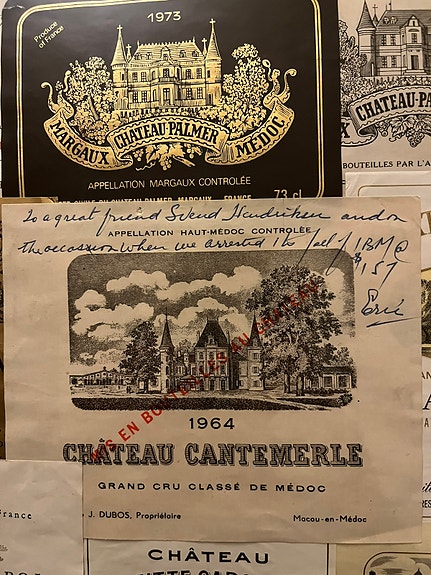 1973
Produce
of France
MARGAUX CHATEAU-PALMER MEDOC
APPELLATION MARGAUX CONTROLÉE
CHATEAU-PALMER
MARGAUX
FRANCE
73 cl
CHATEAU-PA
BOUTEILLES PAR L'A
To a great friend Svend Hendriksen and on
APPELLATION HAUT-MÉDOC CONTROLÉE
the occassion when we arrested the fall of IBM @
$157
Eric
MIS EN BOUTEILLES AU CHATEAU
1964
CHÂTEAU CANTEMERLE
GRAND CRU CLASSÉ DE MÉDOC
J. DUBOS, Propriétaire
Macau-en-Médoc
rance
CHÂTEAU